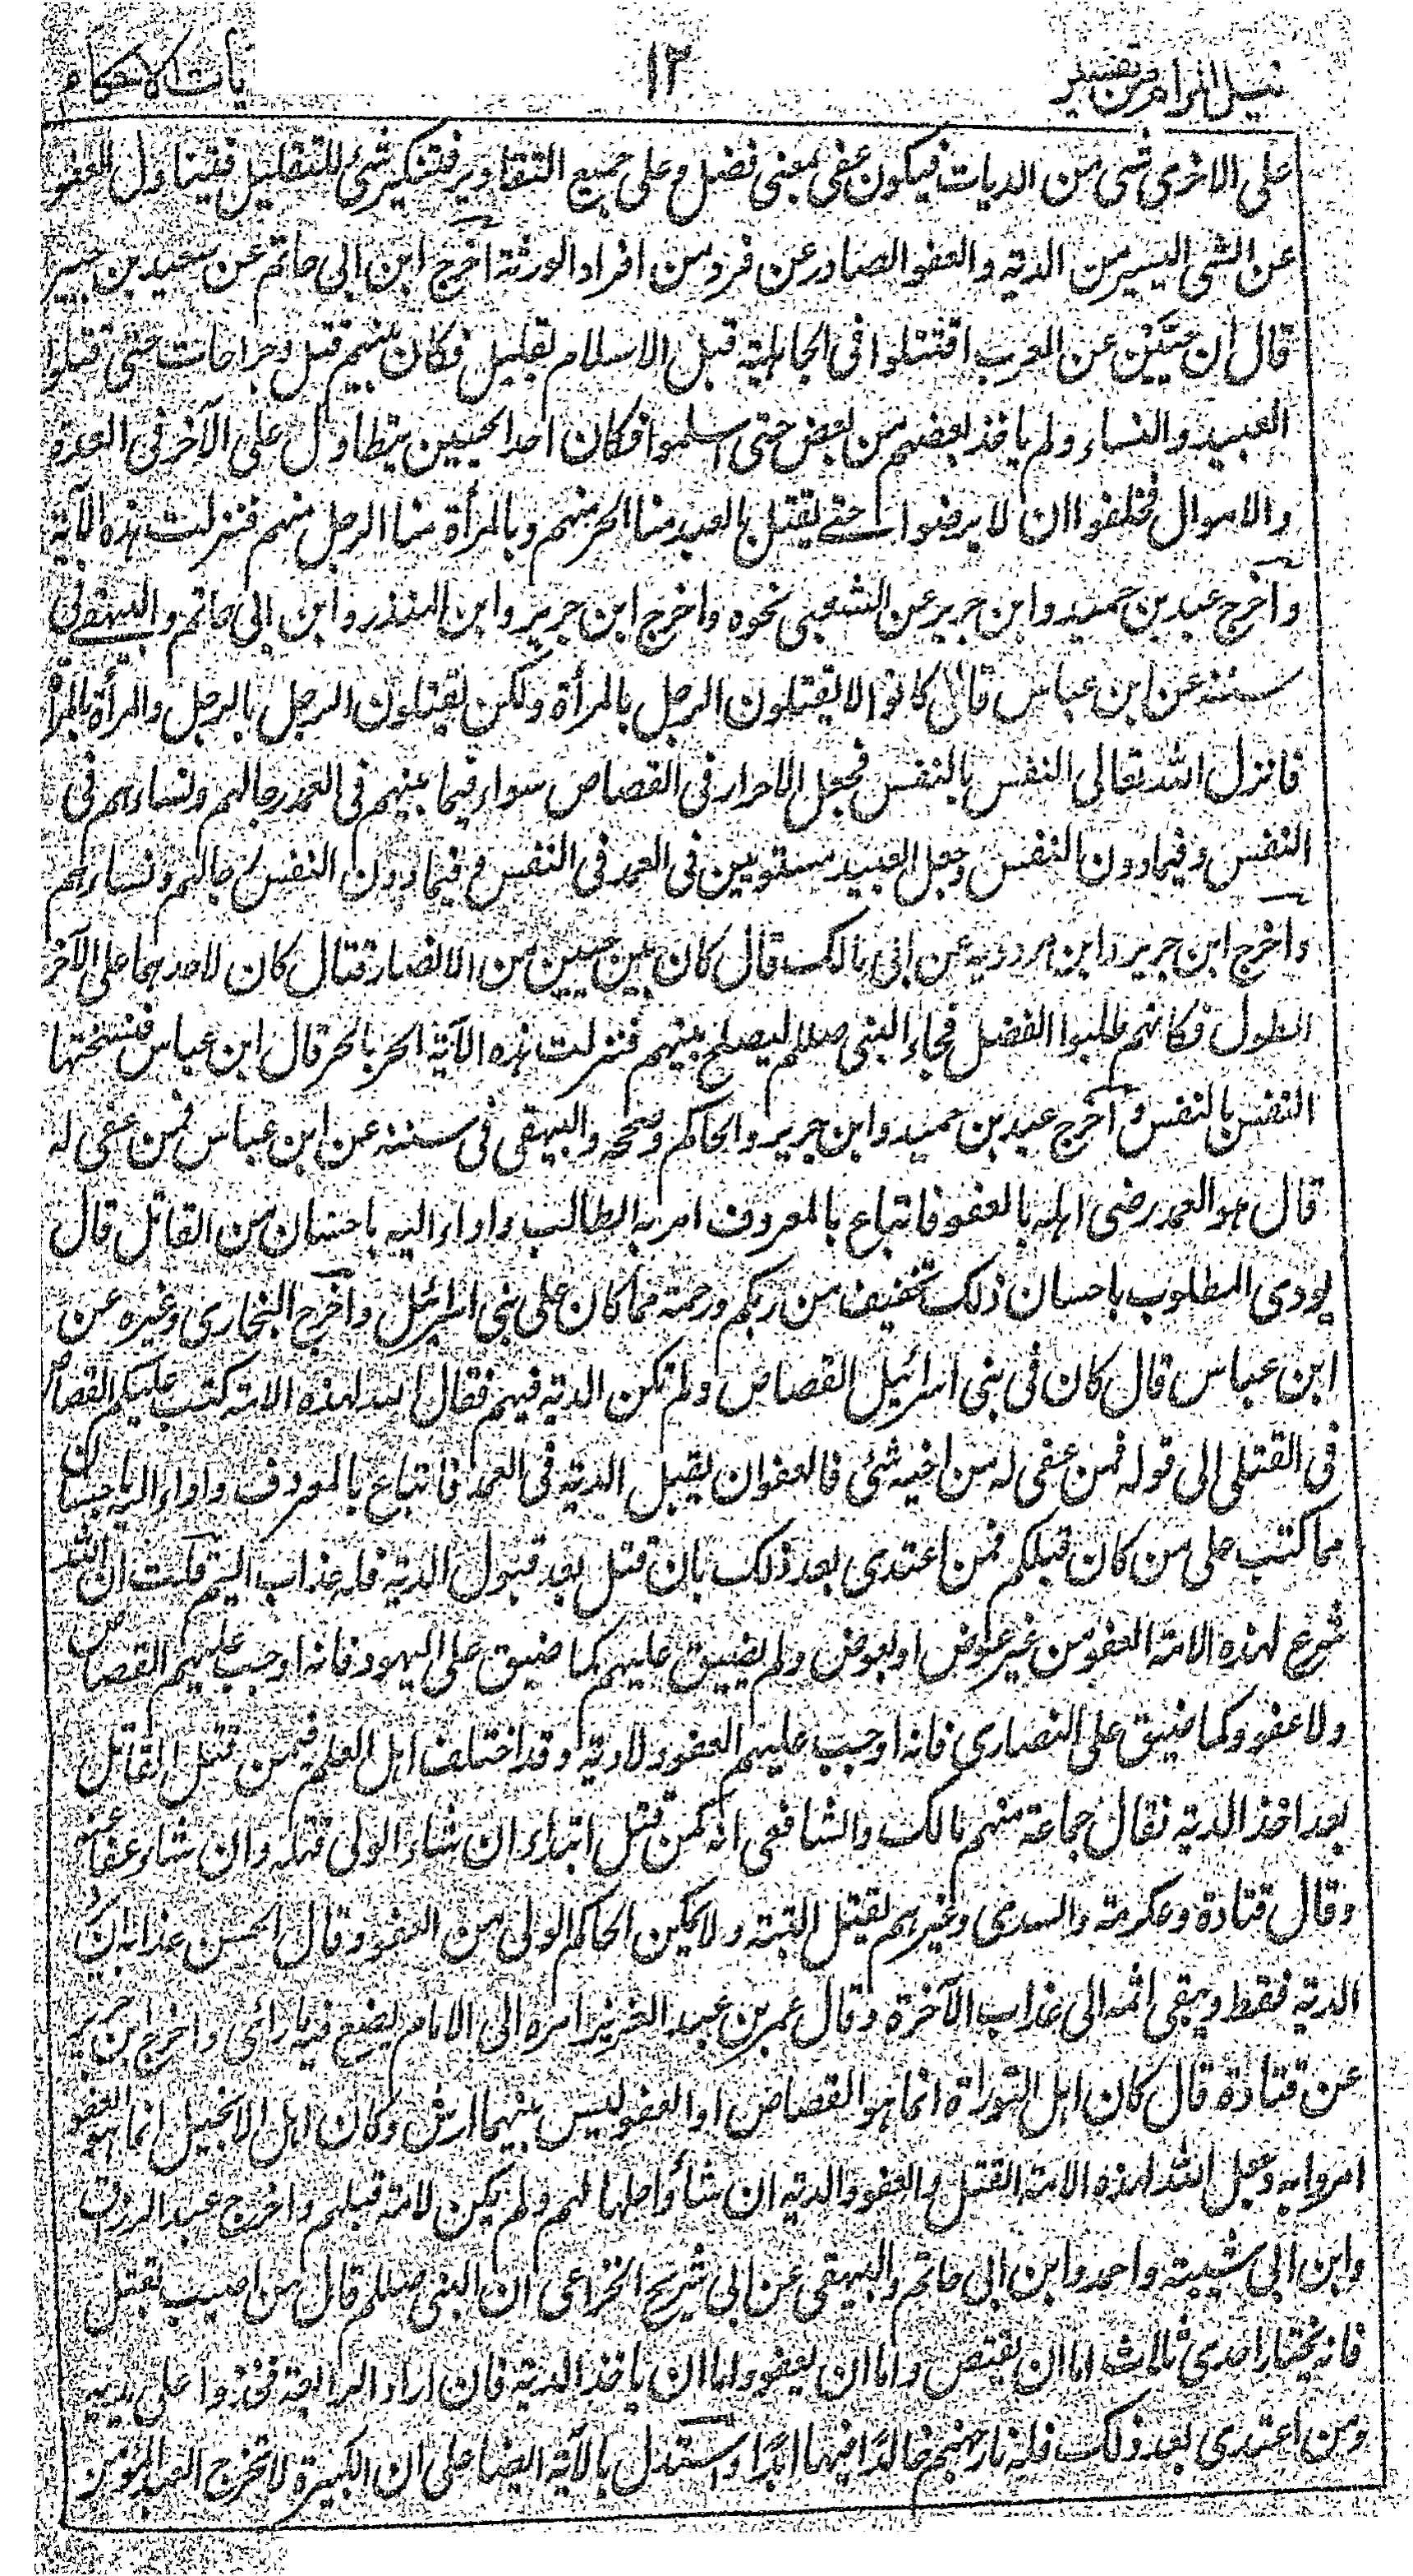 نيل المرام من تفسير ١٢ آيات الاحكام
على الاخرى شئ من الديات فيكون عفى بمعنى فضل وعلى جميع التقادير فتنكير شئ للتقليل فيتناول العفو
عن الشئ اليسير من الدية والعفو الصادر عن فرد من افراد الورثة اخرج ابن ابى حاتم عن سعيد بن جبير
قال ان حيين من العرب اقتتلوا فى الجاهلية قبل الاسلام بقليل فكان بينهم قتل وجراحات حتى قتلوا
العبيد والنساء ولم ياخذ بعضهم من بعض حتى اسلموا فكان احد الحيين يتطاول على الآخر فى العدة
والاموال فحلفوا ان لا يرضوا حتى يقتل بالعبد منا الحر منهم وبالمرأة منا الرجل منهم فنزلت هذه الآية
وآخرج عبد بن حميد وابن جرير عن الشعبى نحوه واخرج ابن جرير وابن المنذر وابن ابى حاتم والبيهقى فى
سننه عن ابن عباس قال كانوا لا يقتلون الرجل بالمرأة ولكن يقتلون الرجل بالرجل والمرأة بالمرأة
فانزل الله تعالى النفس بالنفس فجعل الاحرار فى القصاص سواء فيما بينهم فى العمد رجالهم ونساءهم فى
النفس وفيما دون النفس وجعل العبيد مستويين فى العمد فى النفس وفيما دون النفس رجالهم ونساءهم
واخرج ابن جرير وابن مردويه عن ابى مالك قال كان بين حيين من الانصار قتال كان لاحدهما على الآخر
الطول فكانهم طلبوا الفضل فجاء النبى صللم ليصلح بينهم فنزلت هذه الآية الحر بالحر قال ابن عباس فنسختها
النفس بالنفس وآخرج عبد بن حميد وابن جرير والحاكم وصححه والبيهقى فى سننه عن ابن عباس فمن عفى له
قال هو العمد رضى اهله بالعفو فاتباع بالمعروف امر به الطالب واداء اليه باحسان من القاتل قال
يودى المطلوب باحسان ذلك تخفيف من ربكم ورحمة مما كان على بنى اسرائيل وآخرج البخارى وغيره عن
ابن عباس قال كان فى بنى اسرائيل القصاص ولم تكن الدية فيهم فقال الله لهذه الامة كتب عليكم القصاص
فى القتلى الى قوله فمن عفى له من اخيه شئ فالعفو ان يقبل الدية فى العمد فاتباع بالمعروف واداء اليه باحسان
مما كتب على من كان قبلكم فمن اعتدى بعد ذلك بان قتل بعد قبول الدية فله عذاب اليم قلت ان الله
شرع لهذه الامة العفو من غير عوض او بعوض ولم يضيق عليهم كما ضيق على اليهود فانه اوجب عليهم القصاص
ولا عفو وكما ضيق على النصارى فانه اوجب عليهم العفو ولا دية وقد اختلف اهل العلم فيمن قتل القاتل
بعد اخذ الدية فقال جماعة منهم مالك والشافعى انه كمن قتل ابتداء ان شاء الولى قتله وان شاء عفا عنه
وقال قتادة وعكرمة والسدى وغيرهم يقتل البتة ولا يمكن الحاكم الولى من العفو وقال الحسن عذابه ان يرد
الدية فقط ويبقى اثمه الى عذاب الآخرة وقال عمر بن عبد العزيز امره الى الامام يصنع فيه ما رائى واخرج ابن جرير
عن قتادة قال كان اهل التوراة انما هو القصاص او العفو ليس بينهما ارش وكان اهل الانجيل انما هو العفو
امروا به وجعل الله لهذه الامة القتل والعفو والدية ان شاؤا احلها لهم ولم يكن لامة قبلهم واخرج عبد الرزاق
وابن ابى شيبة واحمد وابن ابى حاتم والبيهقى عن ابى شريح الخزاعى ان النبى صللم قال من اصيب بقتل
فانه يختار احدى ثلاث اما ان يقتص واما ان يعفو واما ان ياخذ الدية فان اراد الرابعة فخذوا على يديه
ومن اعتدى بعد ذلك فله نار جهنم خالدًا فيها ابدًا واستدل بالآية ايضا على ان الكبيرة لا تخرج العبد المؤمن